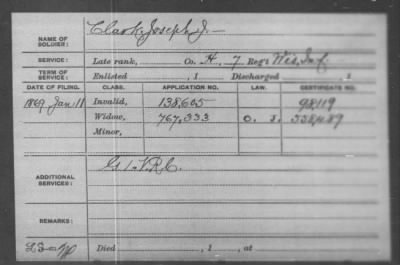 NAME OF SOLDIER: Clark, Joseph J.
SERVICE: Late rank, Co. H, 7 Reg't Wis. Inf.
TERM OF SERVICE: Enlisted , 1 Discharged , 1
DATE OF FILING. CLASS. APPLICATION NO. LAW. CERTIFICATE NO.
1869 Jan 11 Invalid, 138,605 98119
Widow, 767,333 O. S.
Minor,
ADDITIONAL SERVICES: G 1 V.R.C.
REMARKS:
Died , 1 , at